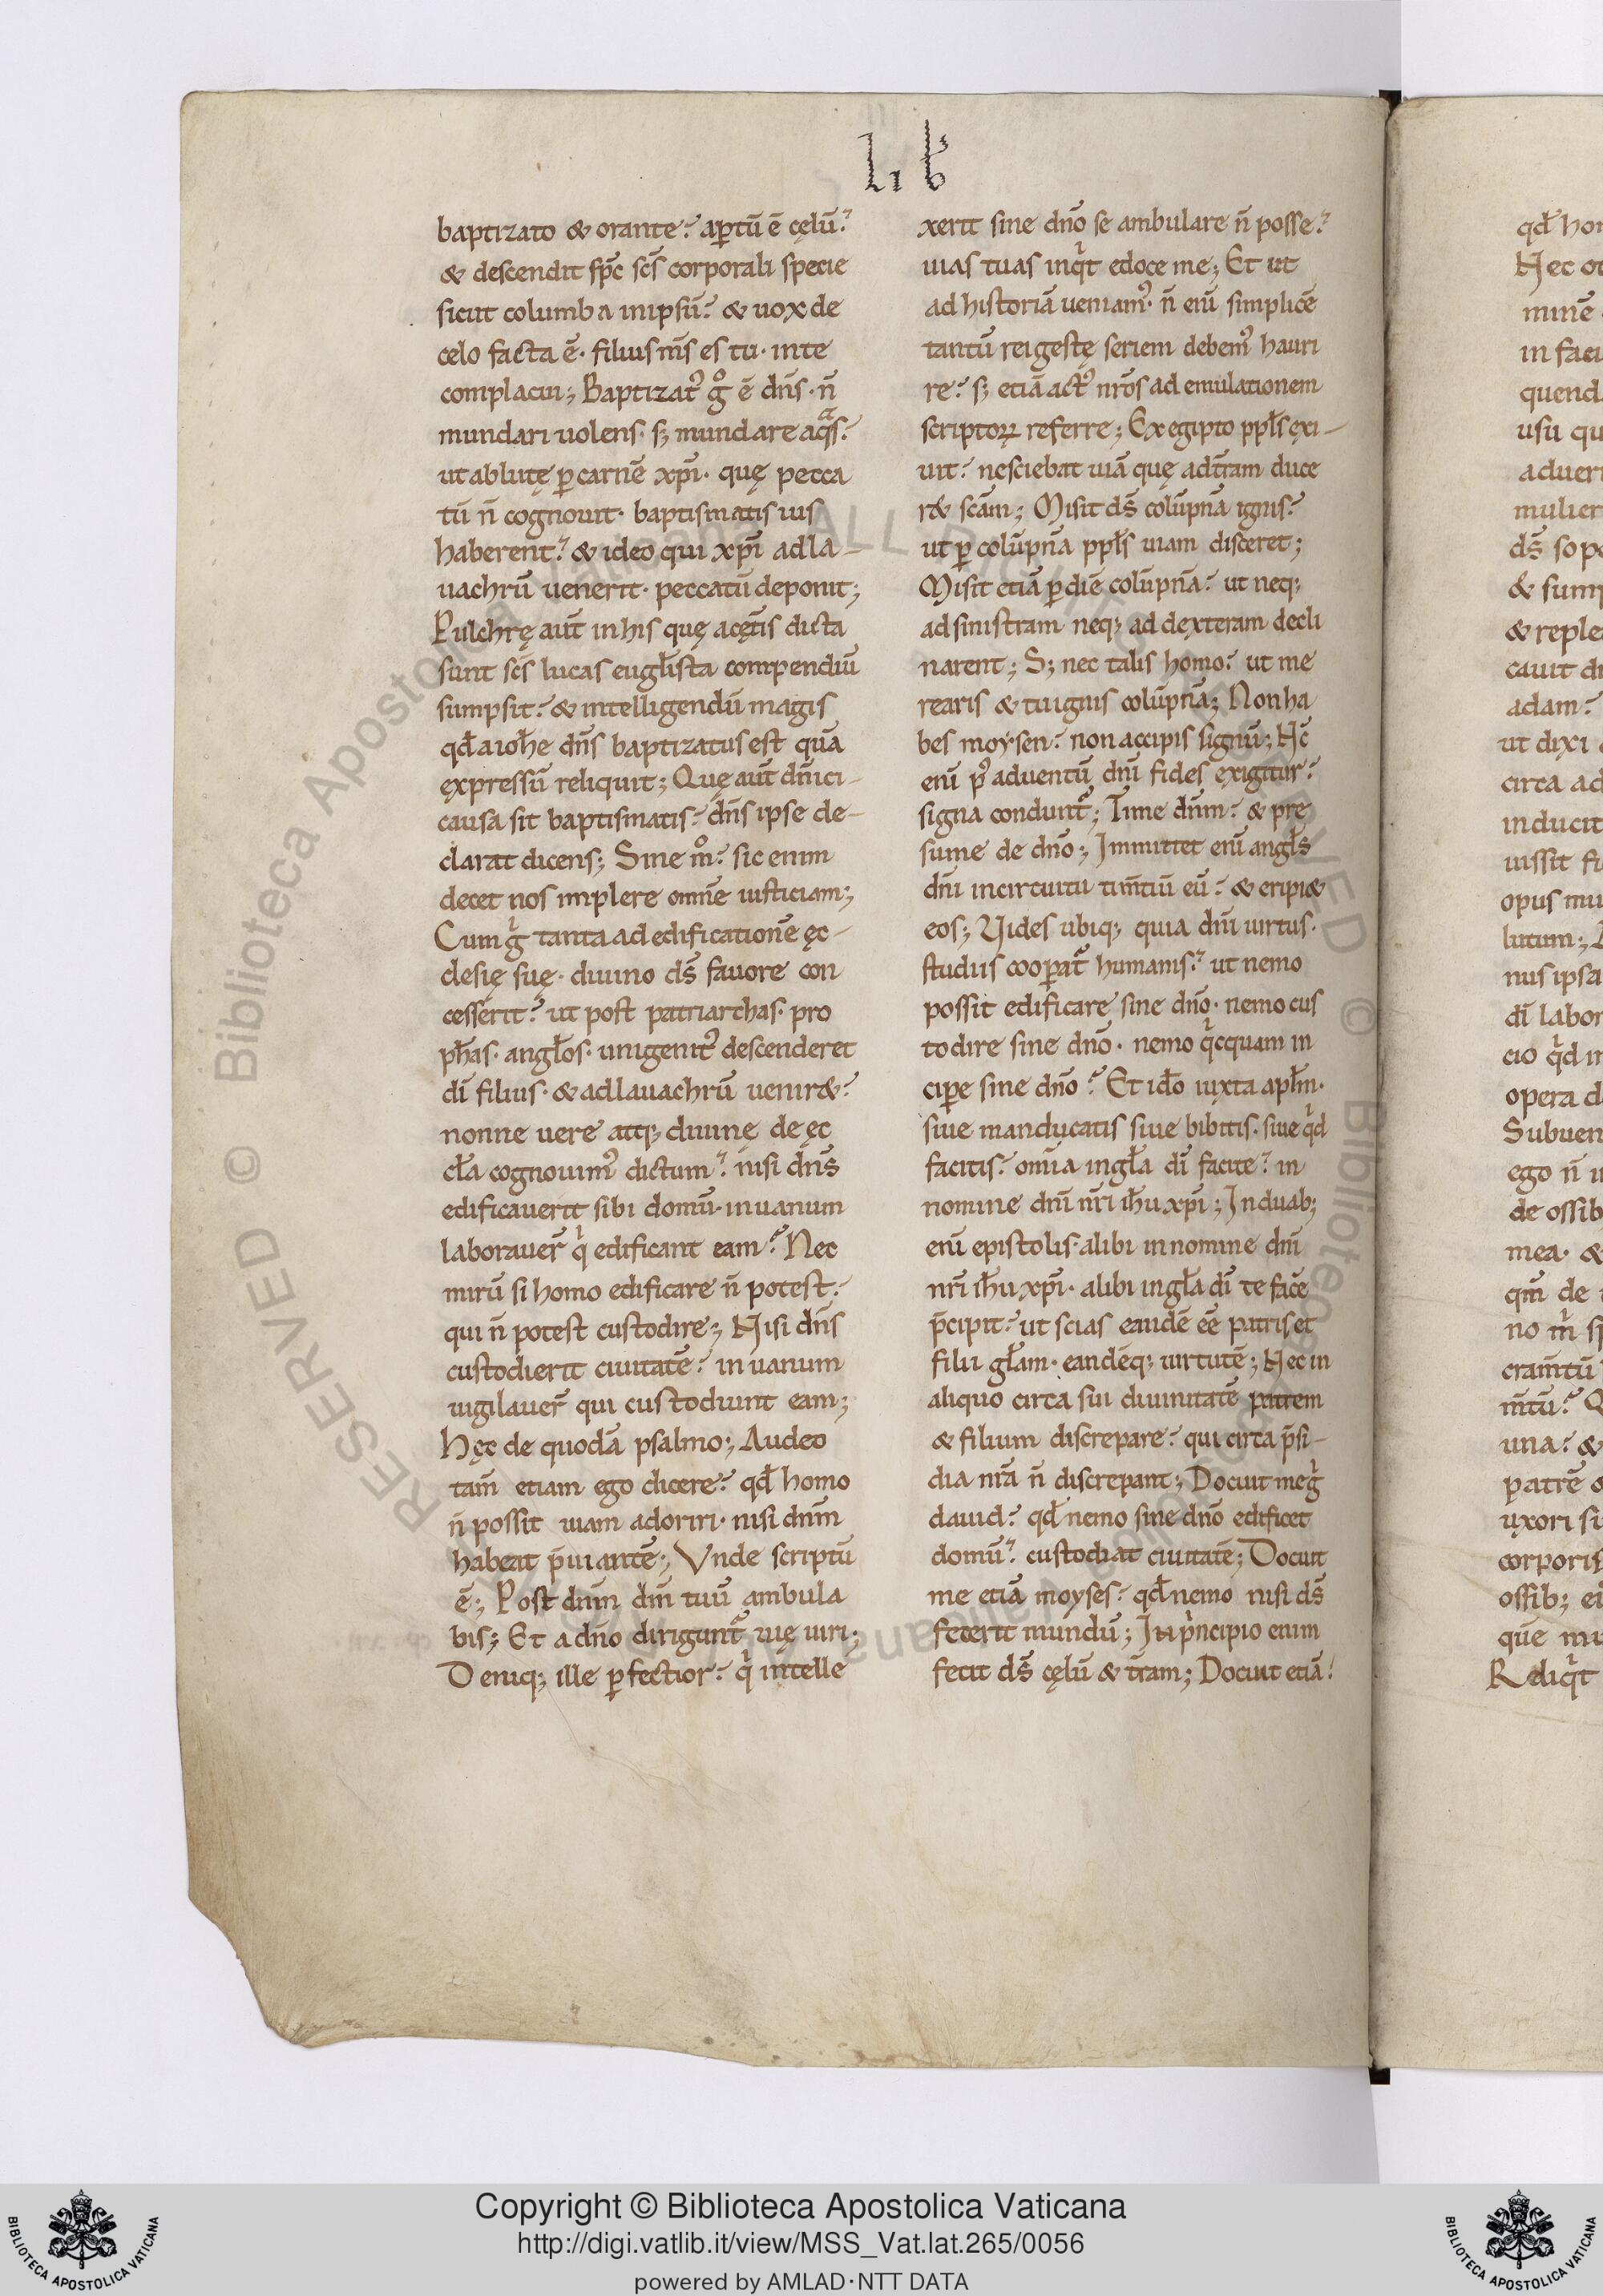 Lib
baptizato & orante? aptū ē cęlū?
& descendit sp̄c sc̄s corporali specie
sicut columba inipsū? & uox de
celo facta ē· filius m̄s es tu· inte
complacui; Baptizat᾿ gͦ ē dn̄s· n̄
mundari uolens· s; mundare aqᵃs?
ut ablutę ꝑ carnē xp̄i· quę pecca
tū n̄ cognouit· baptismatis ius
haberent? & ideo qui xp̄i adla-
uachrū uenerit· peccatū deponit;
Pulchrę aut̄ inhis quę acęt̄is dicta
sunt sc̄s lucas eugl̄ista compendiū
sumpsit? & intelligendū magis
qd̄ aioh̄e dn̄s baptizatus est quā
expressū reliquit; Quę aut̄ dn̄ici-
causa sit baptismatis? dn̄s ipse de-
clarat dicens; Sine mͦ? sic enim
decet nos implere omn̄e iusticiam;
Cum gͥ tanta ad edificationē ęc-
clesię suę· diuino ds̄ fauore con
cesserit? ut post patriarchas· pro
ph̄as· angl̄os· unigenit᾿ descenderet
dī filius· & adlauachrū uenir&?
nonne uere atq; diuinę de ęc
cl̄a cognouim᾿ dictum? nisi dn̄s
edificauerit sibi domū· inuanum
laborauer̄ qͥ edificant eam? Nec
mirū si homo edificare n̄ potest?
qui n̄ potest custodire; Nisi dn̄s
custodierit ciuitatē? in uanum
uigilauer̄ qui custodiunt eam;
Hęc de quodā psalmo; Audeo
tam̄ etiam ego dicere? qd̄ homo
n̄ possit uiam adoriri· nisi dnm̄
habeat p̄uiantē; Vnde scriptū
ē; Post dnm̄ dm̄ tuū ambula
bis; Et a dn̄o dirigunt᾿ uię uiri;
Deniq; ille ꝑfectior? qͥ intelle
xerit sine dn̄o se ambulare n̄ posse?
uias tuas inqͥt edoce me; Et ut
ad historiā ueniam᾿· n̄ enī simplicē
tantū rei gestę seriem debem᾿ hauri
re? s; etiā act᾿ nr̄os ad emulationem
scriptoꝝ referre; Ex egipto ppl̄s exi-
uit? nesciebat uiā quę adt̄ram duce
r& scām; Misit ds̄ colūpnā ignis?
ut ꝑ colūpnā ppl̄s uiam disceret;
Misit etiā ꝑ diē colūpnā? ut neq;
ad sinistram neq; ad dexteram decli
narent; S; nec talis homo? ut me
rearis & tu ignis colūpnā; Non ha
bes moysen? non accipis signū; Hc̄
enī p᾿ aduentū dn̄i fides exigitur?
signa condunt᾿; Time dnm̄? & pre
sume de dn̄o; Immittet enī angl̄s
dn̄i incircuitu tim̄tiū eū? & eripi&
eos; Vides ubiq; quia dn̄i uirtus·
studiis cooꝑat᾿ humanis? ut nemo
possit edificare sine dn̄o· nemo cus
todire sine dn̄o· nemo qͥcquam in
ciꝑe sine dn̄o? Et id̄o iuxta apl̄m·
siue manducatis siue bibitis· siue qͥd
facitis? omīa ingl̄a dī facite? in
nomine dn̄i nr̄i ih̄u xp̄i; Induab;
enī epistolis· alibi in nomine dn̄i
nr̄i ih̄u xp̄i· alibi ingl̄a dī te facē
p̄cipit? ut scias eandē eē patris et
filii gl̄am· eandēq; uirtutē; Nec in
aliquo circa sui diuinitatē patrem
& filium discrepare? qui circa p̄si-
dia nr̄a n̄ discrepant; Docuit me gͥ
dauid? qd̄ nemo sine dn̄o edificet
domū? custodiat ciuitatē; Docuit
me etiā moyses? qd̄ nemo nisi ds̄
fecerit mundū; Inpͥncipio enim
fecit ds̄ cęlū & t̄ram; Docuit etiā
qd̄ ho
Nec
minē
in faci
quend
usu qu
aduer
mulier
ds̄ sopo
& sum
& reple
cauit d
adam?
ut dixi
circa ad
inducit
uissit fi
opus mu
lutum;
nus ipsa
dī labor
cio qͥd in
opera d
Subuen
ego n̄
de ossib
mea· &
qm̄ de
no
cram̄tū
m̄tū?
una? &
patrē
uxori si
corporis
ossib; ei
quē mu
Rediqͥt
Copyright © Biblioteca Apostolica Vaticana
http://digi.vatlib.it/view/MSS_Vat.lat.265/0056
powered by AMLAD·NTT DATA
BIBLIOTECA APOSTOLICA VATICANA
BIBLIOTECA APOSTOLICA VATICANA